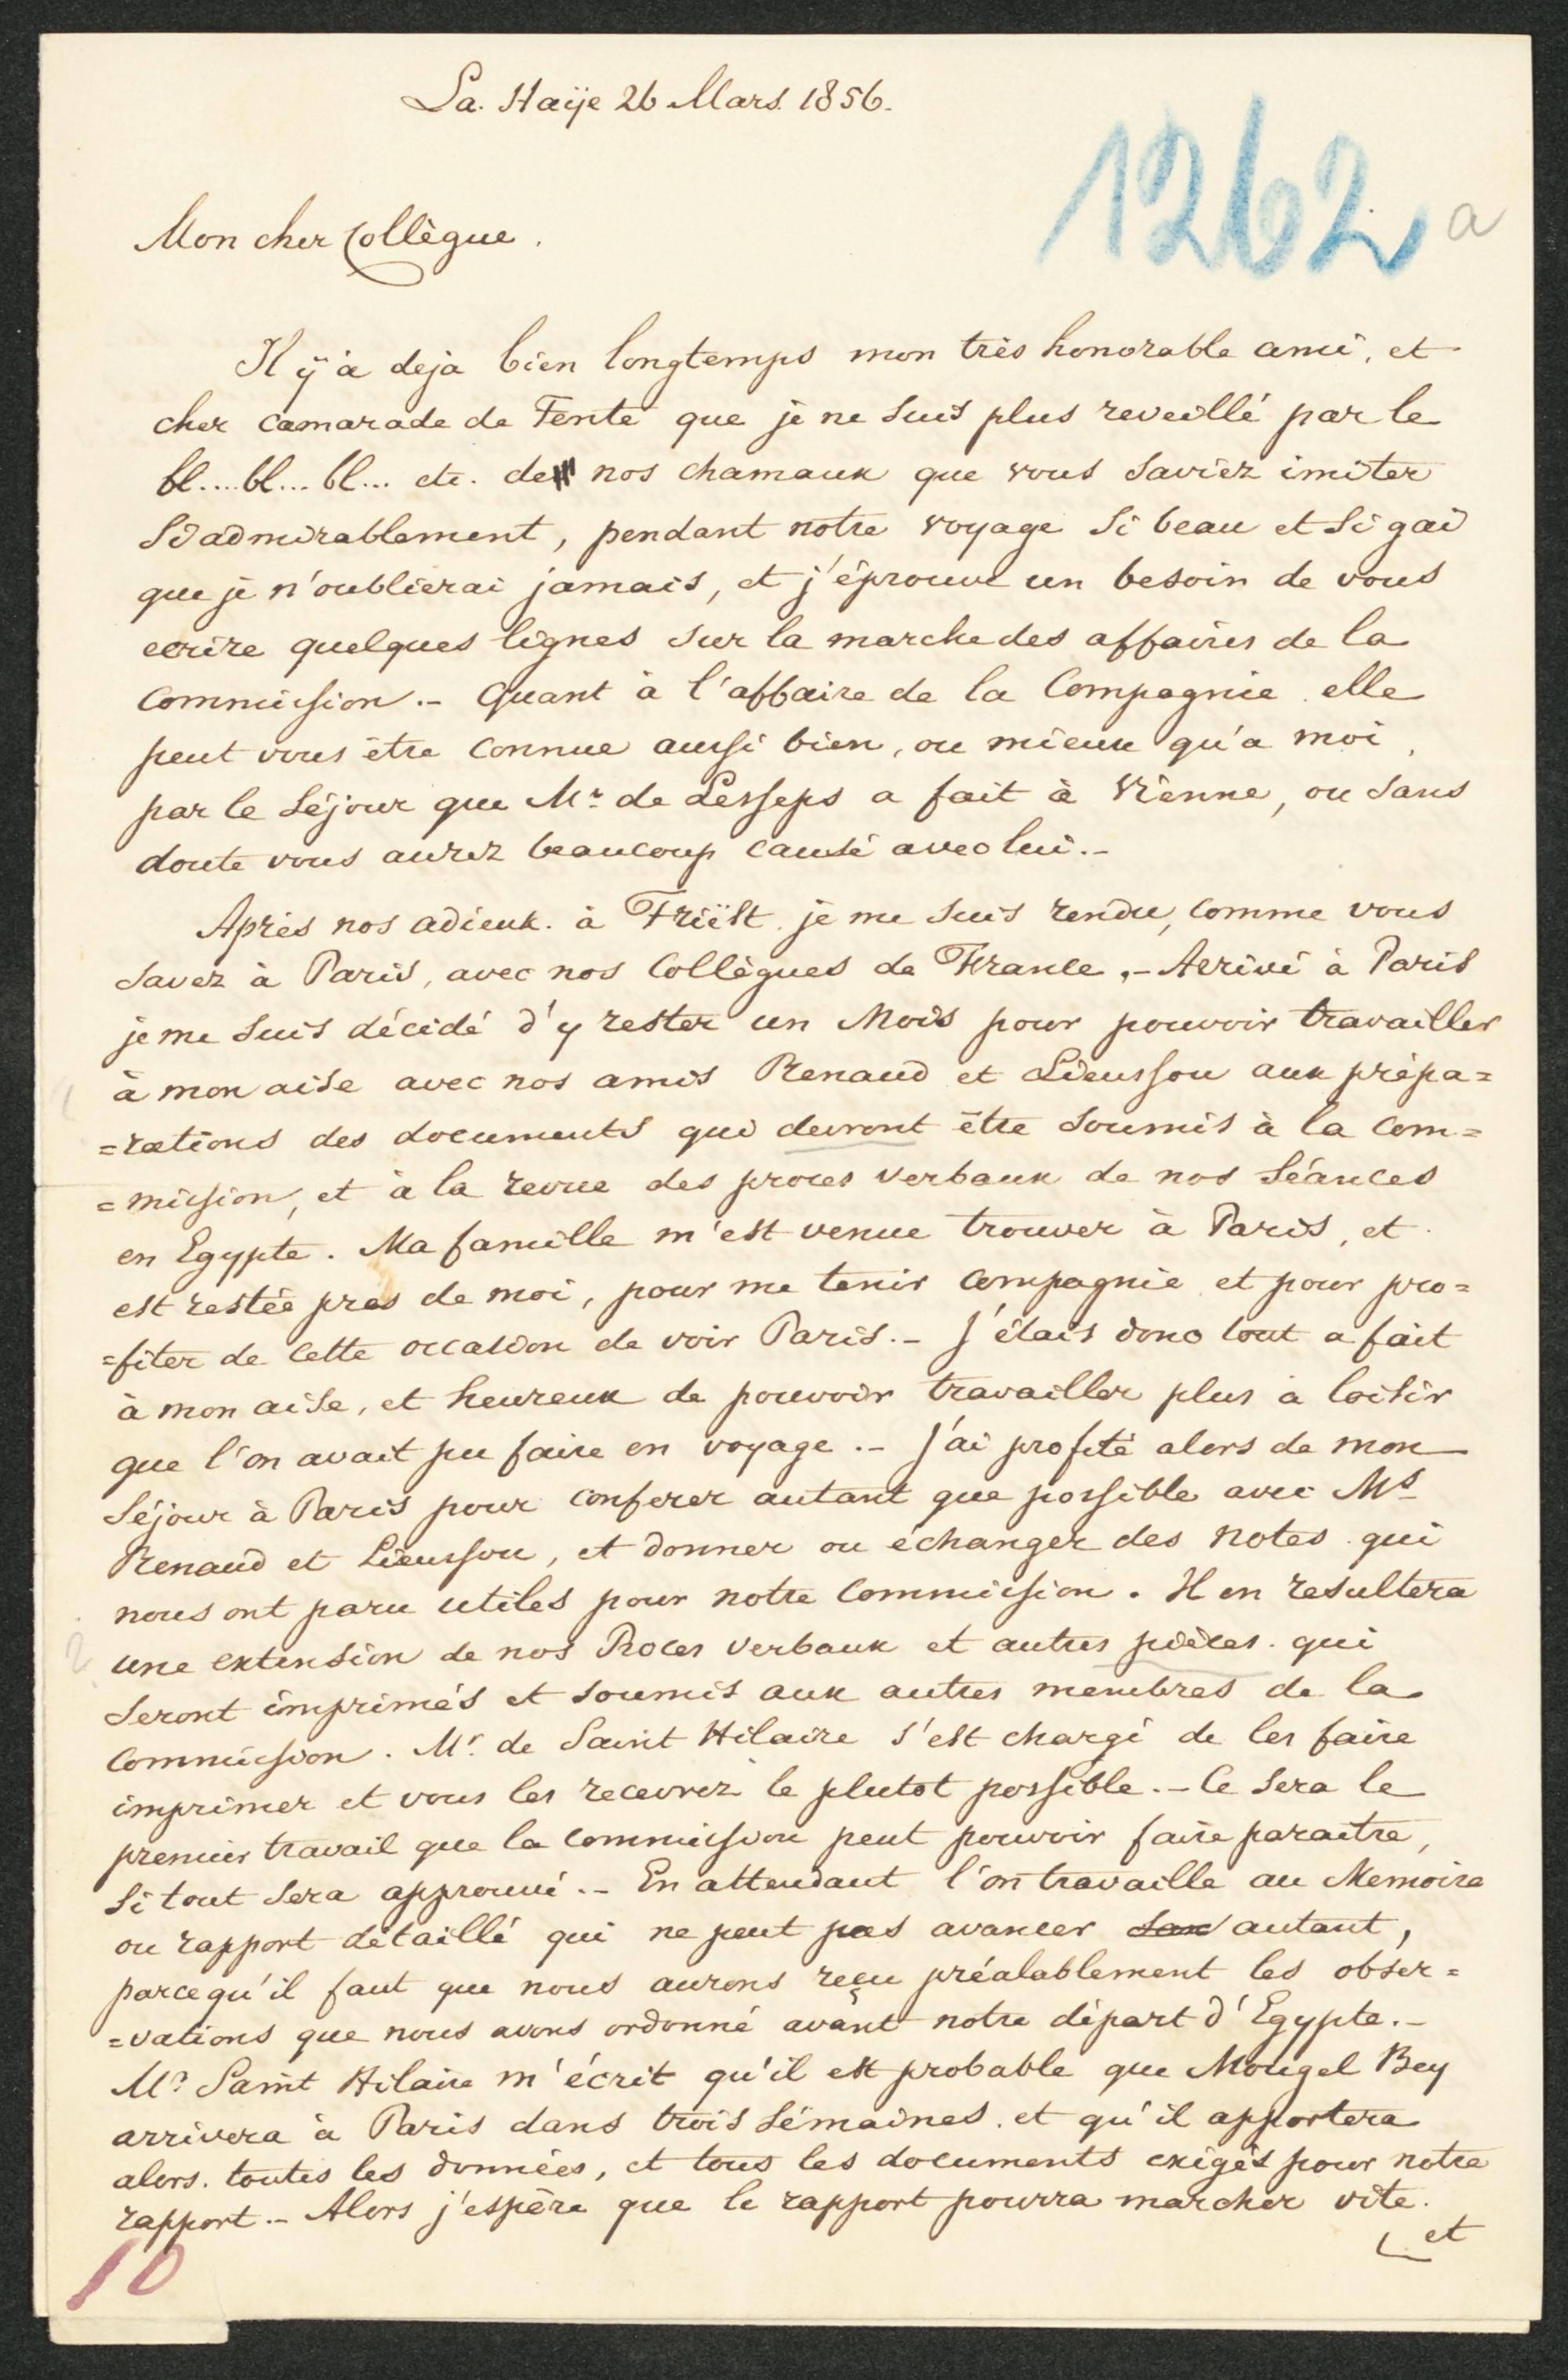 La. Haije 26 Mars. 1856.
1262 a
Mon cher Collègue.
Il ÿ à deja bien longtemps mon très honorable ami, et
cher camarade de Tente que je ne suis plus reveillé par le
bl....bl...bl... etc. de nos chamaux que vous saviez imiter
si admirablement, pendant notre voyage si beau et si gai
que je n'oublierai jamais, et j'éprouve un besoin de vous
ecrire quelques lignes sur la marche des affaires de la
Commission.- Quant à l'affaire de la Compagnie elle
peut vous être connue aussi bien, ou mieux qu'a moi,
par le séjour que Mr de Lesseps a fait à Viènne, ou sans
doute vous aurez beaucoup causé avec lui.-
Après nos adieux. à Triëst. je me suis rendu, comme vous
savez à Paris, avec nos Collègues de France.- Arrivé à Paris
je me suis décidé d'y rester un Mois pour pouvoir travailler
à mon aise avec nos amis Renaud et Lieussou aux prépa=
=rations des documents qui devront être soumis à la Com=
=mission, et à la revue des proces verbaux de nos séances
en Egypte. Ma famille m'est venue trouver à Paris, et
est restée pres de moi, pour me tenir compagnie et pour pro=
=fiter de cette occasion de voir Paris.- J'étais donc tout a fait
à mon aise, et heureux de pouvoir travailler plus à loisir
que l'on avait pu faire en voyage.- J'ai profité alors de mon
séjour à Paris pour conferer autant que possible avec Ms
Renaud et Lieussou, et donner ou échanger des notes qui
nous ont paru utiles pour notre Commission. Il en resultera
2
une extension de nos Proces verbaux et autres pièces. qui
seront imprimés et soumis aux autres membres de la
Commission. Mr. de Saint Hilaire s'est chargé de les faire
imprimer et vous les recevrez le plutot possible.- Ce sera le
premier travail que la Commission peut pouvoir faire paraitre,
si tout sera approuvé.- En attendant l'on travaille au Memoire
ou rapport détaillé qui ne peut pas avancer autant,
parcequ'il faut que nous aurons reçu préalablement les obser=
=vations que nous avons ordonné avant notre départ d'Egypte.-
Mr Saint Hilaire m'écrit qu'il est probable que Mougel Bey
arrivera à Paris dans trois sémaines. et qu'il apportera
alors. toutes les données, et tous les documents exigés pour notre
rapport.- Alors j'espère que le rapport pourra marcher vite.
et
10